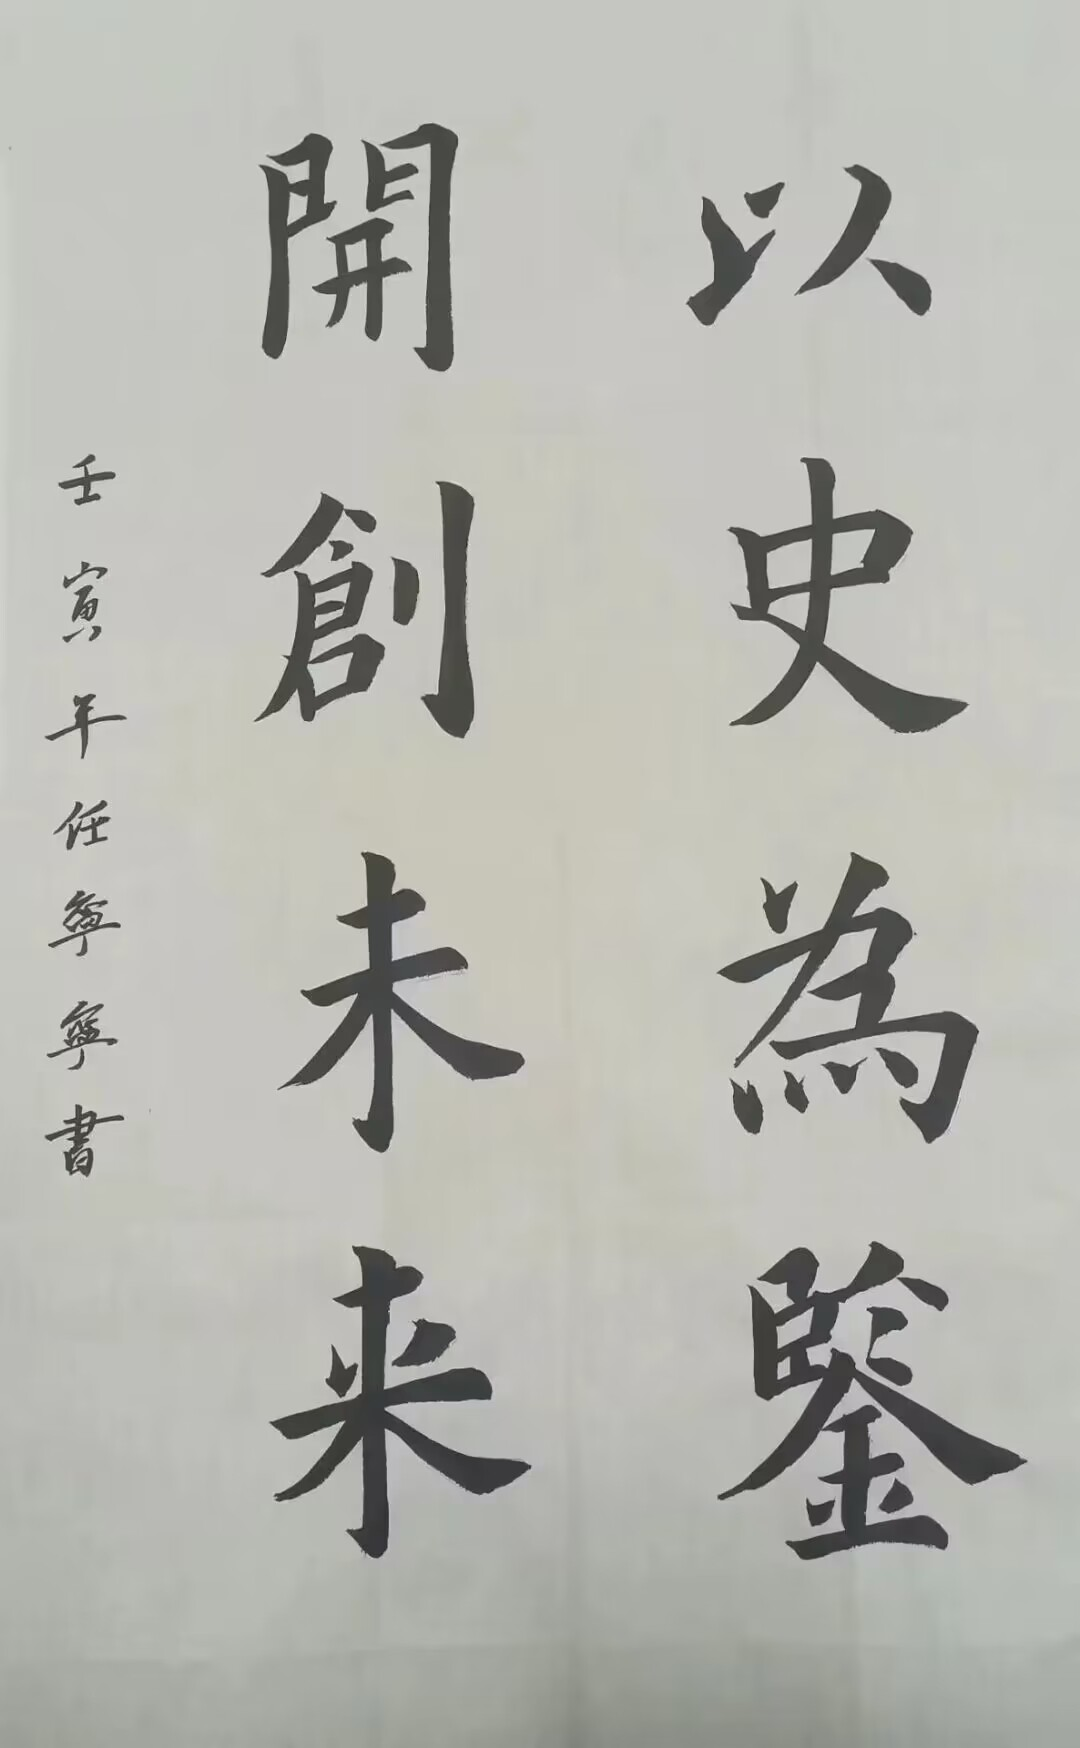 以史為鍳
開創未来
壬寅年任寧寧書